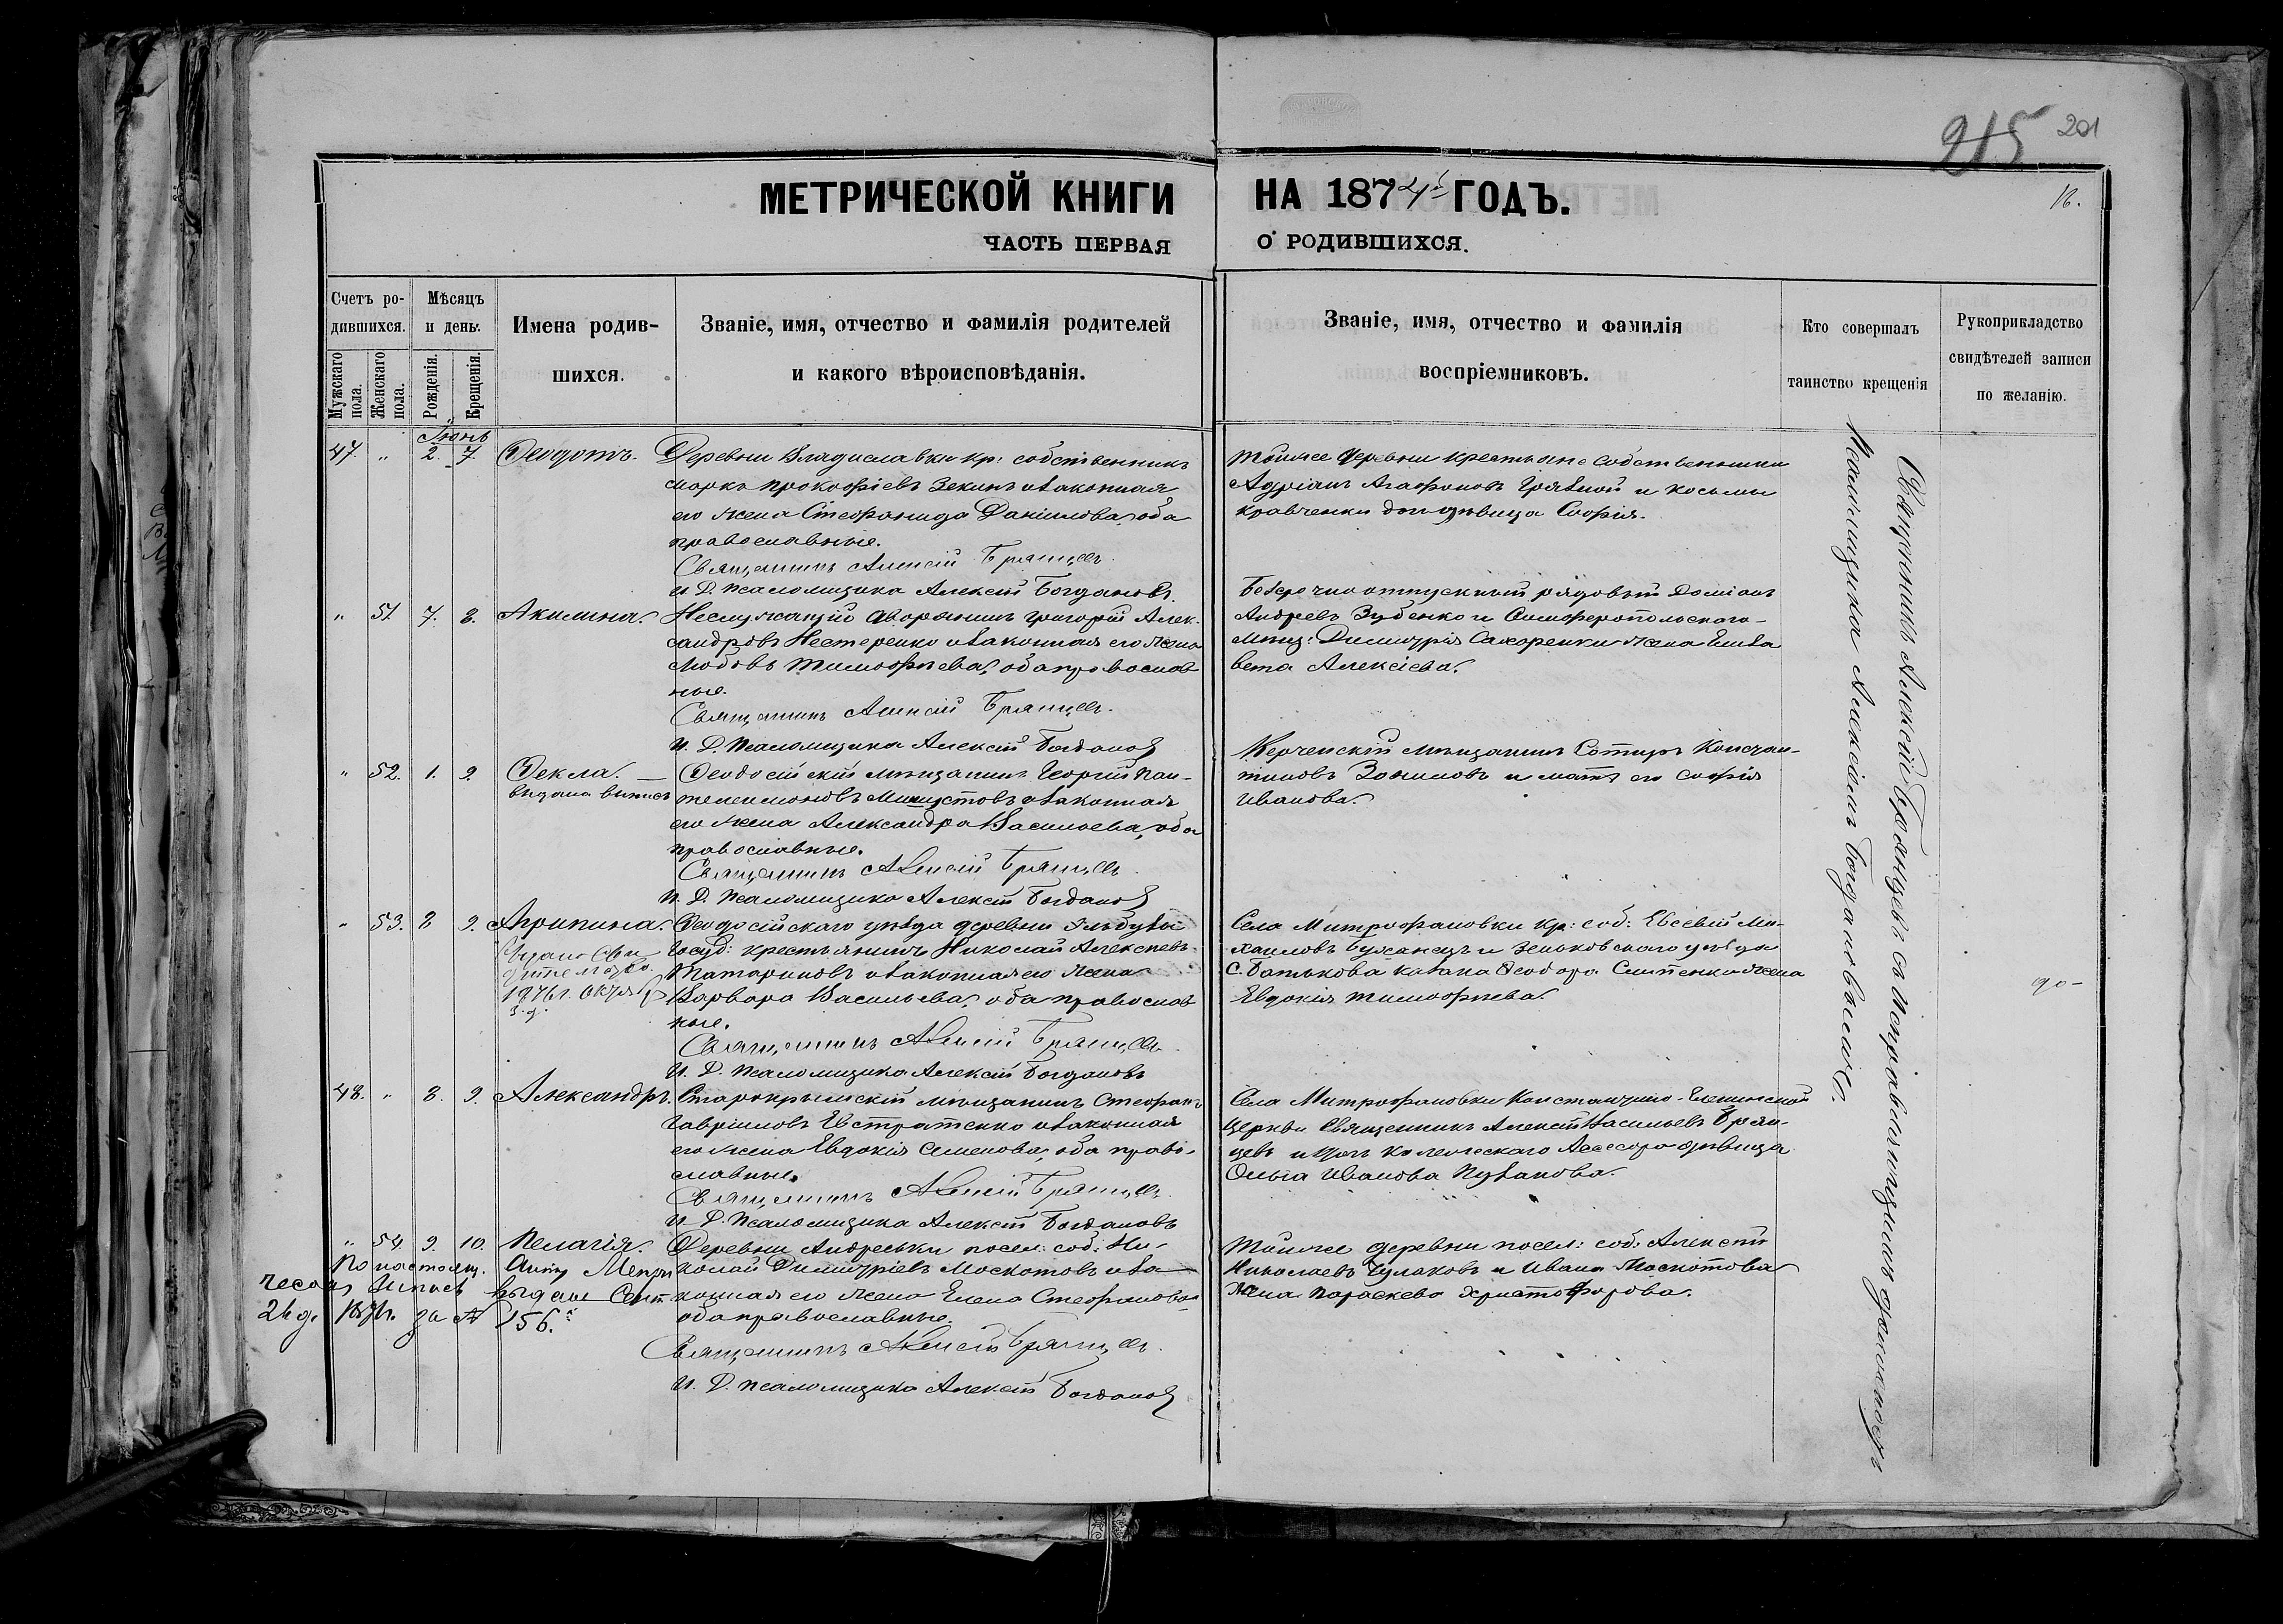 215 201
МЕТРИЧЕСКОЙ КНИГИ НА 1874й ГОДЪ.
16.
ЧАСТЬ ПЕРВАЯ О РОДИВШИХСЯ.
Счетъ ро-
дившихся.
Мужскаго пола.
Женскаго пола.
Мѣсяцъ
и день.
Рожденія.
Крещенія.
Имена родив-
шихся.
Званіе, имя, отчество и фамилія родителей
и какого вѣроисповѣданія.
Званіе, имя, отчество и фамилія
воспріемниковъ.
Кто совершалъ
таинство крещенія
Рукоприкладство
свидѣтелей записи
по желанію.
Іюнь
47. " 2. 7. Ѳеодотъ.
Деревни Владиславки кр: собственникъ
Марко Прокофіевъ Зекинъ и законная
его жена Стефанида Даніилова, оба
православные.
Священникъ Алексій Брянцевъ.
И. Д. Псаломщика Алексій Богдановъ.
Тойже деревни крестьяне собственники
Адріанъ Агафоновъ Грязной и Косьмы
Кравченки дочь дѣвица Софія.
" 51. 7. 8. Акилина.
Неслужащій дворянинъ Григорій Алек-
сандровъ Нестеренко и законная его жена
Любовь Тимофѣева, оба православ-
ные.
Священникъ Алексій Брянцевъ.
И. Д. Псаломщика Алексій Богдановъ
Безсрочно отпускной рядовый Доміанъ
Андреевъ Зубенко и Симферопольскаго
мѣщ: Димитрія Сахоренки жена Елиза
вета Алексіева.
" 52. 1. 9. Ѳекла.
Выдана выпись
Ѳеодосійскій мѣщанинъ Георгій Пан-
телеимоновъ и законная
его жена Александра Васильева, оба
православные.
Священникъ Алексій Брянцевъ.
И. Д. Псаломщика Алексій Богдановъ
Керченскій мѣщанинъ Сотиръ Констан-
тиновъ и мать его Софія
Иванова.
" 53. 8. 9. Агрипина.
Ѳеодосійскаго уѣзда деревни
Госуд: крестьянинъ Николай Алексѣевъ
Татариновъ и законная его жена
Варвара Васильева, оба православ
ные.
Священникъ Алексій Брянцевъ.
И. Д. Псаломщика Алексій Богдановъ
Села Митрофановки кр: соб: Евсевій Ми-
хаиловъ и Зеньковскаго уѣзда
с. Батькова казака Ѳеодора жена
Евдокія Тимофѣева.
48. " 8. 9. Александръ.
Старокрымскій мѣщанинъ Стефанъ
Гавріиловъ Евстратенко и законная
его жена Евдокія Семенова, оба право-
славные.
Священникъ Алексій Брянцевъ.
И. Д. Псаломщика Алексій Богдановъ
Села Митрофановки Константино-Еленинской
Церкви Священникъ Алексій Васильевъ Брян-
цевъ и дочь Коллежскаго Ассесора дѣвица
Ольга Иванова Пузанова.
" 54. 9. 10. Пелагія.
По настоящ. Акту Метри
ческая Выпись выдана Сент
за № 156.
Деревни Андреевки посел: соб: Ни-
колай Димитріевъ Москотовъ и за-
конная его жена Елена Стефанова
оба православные.
Священникъ Алексій Брянцевъ.
И. Д. Псаломщика Алексій Богдановъ
Тойже деревни посел: соб: Алексій
Николаевъ Чулаковъ и Ивана Москотова
жена Параскева Христофорова.
Священникъ Алексій Брянцевъ съ исправляющимъ должность
Псаломщика Алексіемъ Богдановымъ.